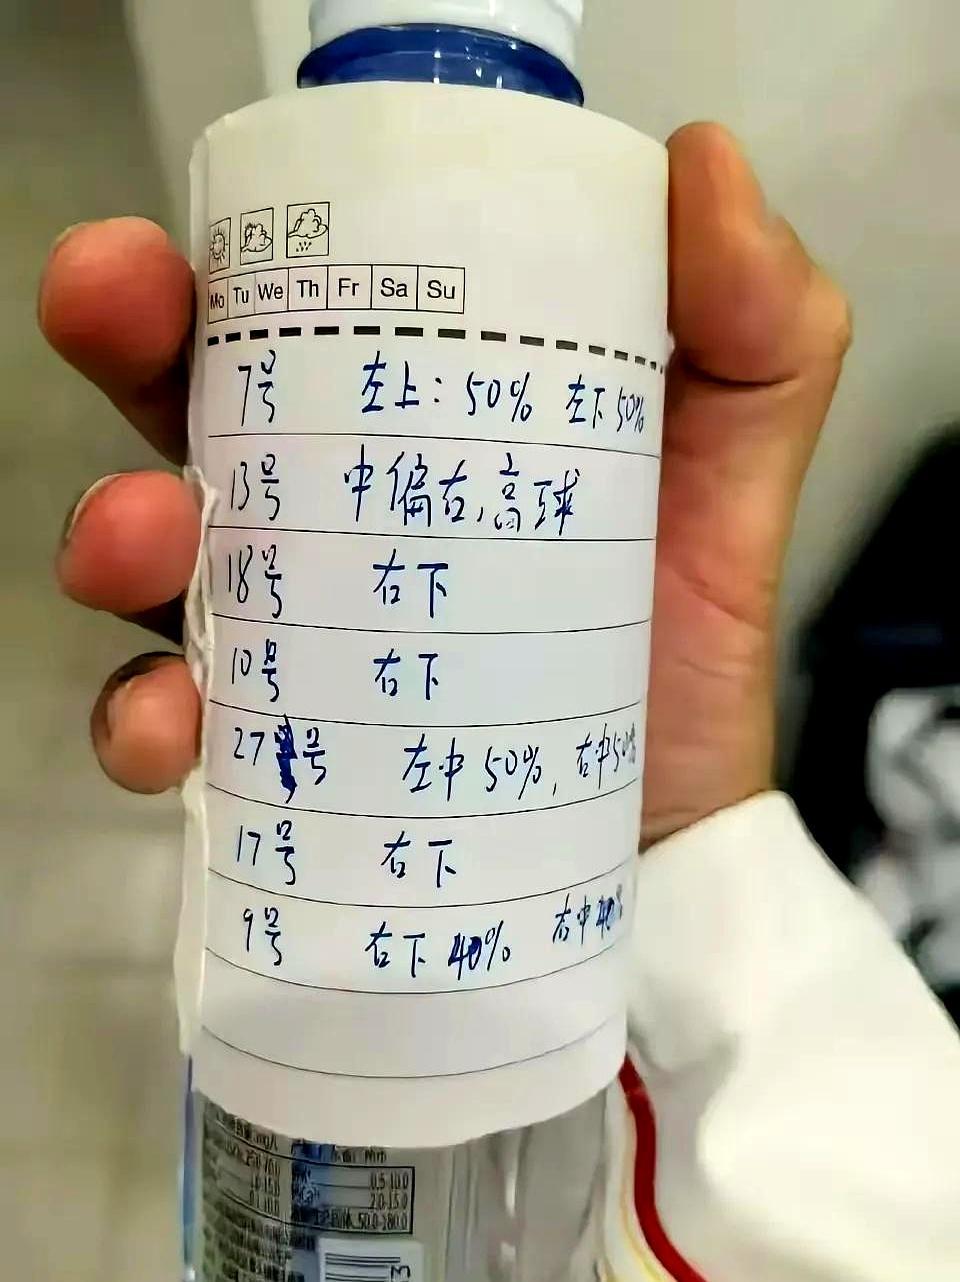 Mo Tu We Th Fr Sa Su
7号 左上：50% 左下50%
13号 中偏右，高球
18号 右下
10号 右下
27号 左中50%，右中50%
17号 右下
9号 右下40% 右中40%
0.5-10.0
2.0-15.0
50.0-180.0